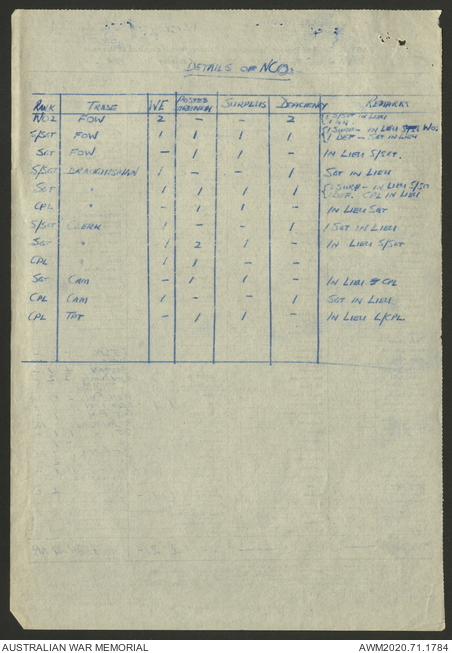 DETAILS OF NCOs
RANK TRADE W/E POSTED STRENGTH SURPLUS DEFICIENCY REMARKS
WO2 FOW 2 - - 2 { 1 S/SGT IN LIEU
S/SGT FOW 1 1 1 1 { 1 SURP - IN LIEU WO2
1 DEF - SGT IN LIEU
SGT FOW - 1 1 - IN LIEU S/SGT.
S/SGT DRAUGHTSMAN 1 - - 1 SGT IN LIEU
SGT " 1 1 1 1 { 1 SURP - IN LIEU S/SGT
1 DEF. CPL IN LIEU
CPL " - 1 1 - IN LIEU SGT
S/SGT CLERK 1 - - 1 1 SGT IN LIEU
SGT " 1 2 1 - IN LIEU S/SGT
CPL " 1 1 - -
SGT CAM - 1 1 - IN LIEU CPL
CPL CAM 1 - - 1 SGT IN LIEU
CPL TPT - 1 1 - IN LIEU L/CPL
AUSTRALIAN WAR MEMORIAL AWM2020.71.1784